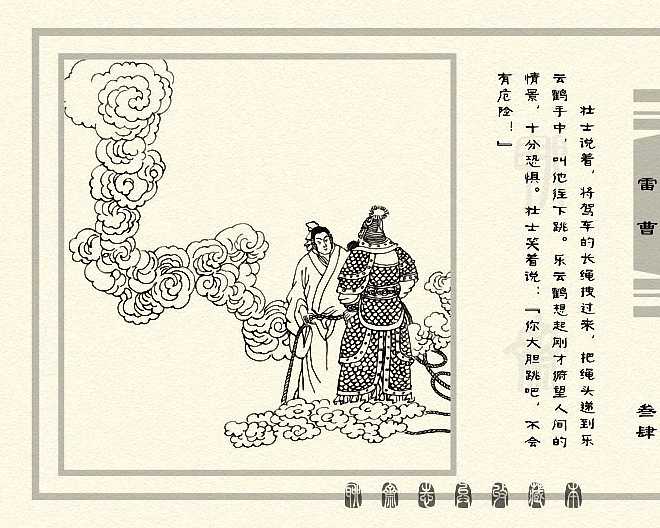 壮士说着，将驾车的长绳拽过来，把绳头递到乐
云鹤手中，叫他往下跳。乐云鹤想起刚才俯望人间的
情景，十分恐惧。壮士笑着说：『你大胆跳吧，不会
有危险！』
雷曹
叁肆